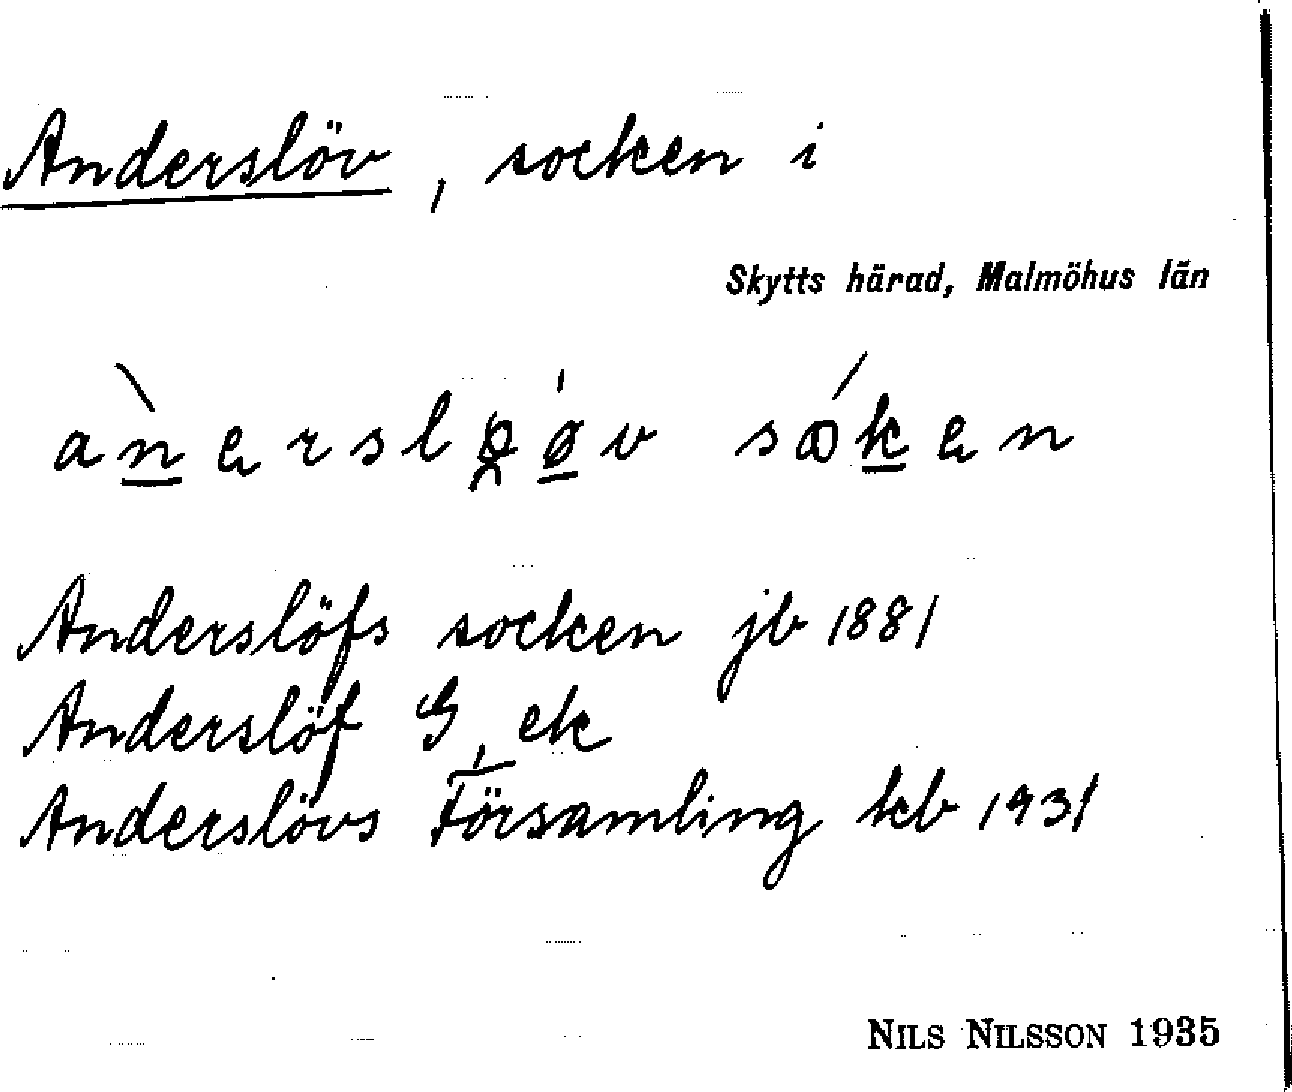 Anderslöv, socken i
Skytts härad, Malmöhus län
Anderslöfs socken jb 1881
Anderslöf G, ek
Anderslövs Församling kb 1931
NILS NILSSON 1935